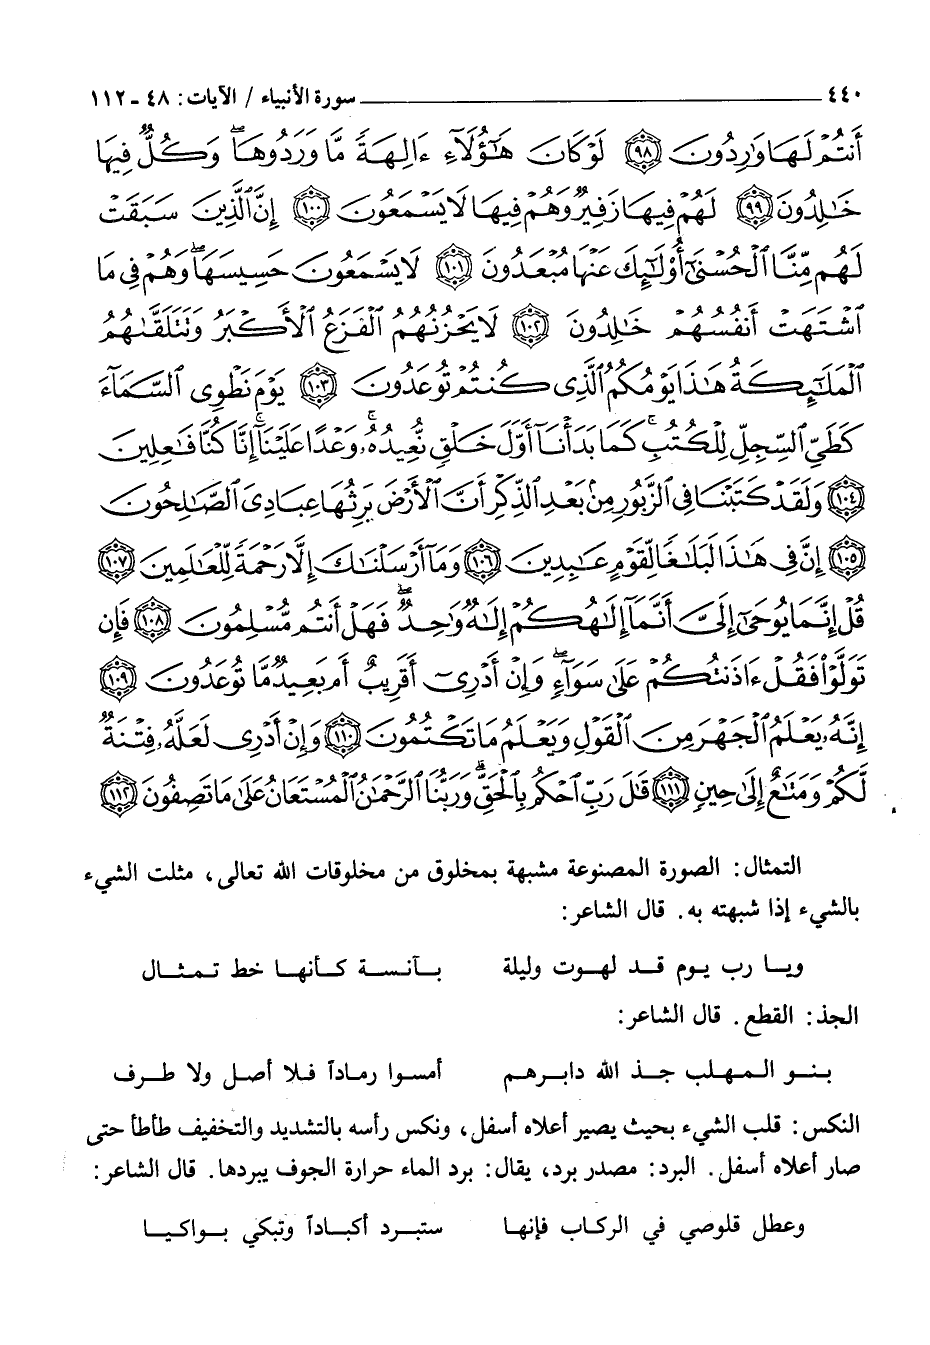 ٤٤٠ سورة الأنبياء / الآيات: ٤٨ - ١١٢
أَنتُمْ لَهَا وَارِدُونَ ۝٩٨ لَوْ كَانَ هَٰٓؤُلَآءِ ءَالِهَةً مَّا وَرَدُوهَا ۖ وَكُلٌّ فِيهَا
خَٰلِدُونَ ۝٩٩ لَهُمْ فِيهَا زَفِيرٌ وَهُمْ فِيهَا لَا يَسْمَعُونَ ۝١٠٠ إِنَّ ٱلَّذِينَ سَبَقَتْ
لَهُم مِّنَّا ٱلْحُسْنَىٰٓ أُو۟لَٰٓئِكَ عَنْهَا مُبْعَدُونَ ۝١٠١ لَا يَسْمَعُونَ حَسِيسَهَا ۖ وَهُمْ فِى مَا
ٱشْتَهَتْ أَنفُسُهُمْ خَٰلِدُونَ ۝١٠٢ لَا يَحْزُنُهُمُ ٱلْفَزَعُ ٱلْأَكْبَرُ وَتَتَلَقَّىٰهُمُ
ٱلْمَلَٰٓئِكَةُ هَٰذَا يَوْمُكُمُ ٱلَّذِى كُنتُمْ تُوعَدُونَ ۝١٠٣ يَوْمَ نَطْوِى ٱلسَّمَآءَ
كَطَىِّ ٱلسِّجِلِّ لِلْكُتُبِ ۚ كَمَا بَدَأْنَآ أَوَّلَ خَلْقٍ نُّعِيدُهُۥ ۚ وَعْدًا عَلَيْنَآ ۚ إِنَّا كُنَّا فَٰعِلِينَ
۝١٠٤ وَلَقَدْ كَتَبْنَا فِى ٱلزَّبُورِ مِنۢ بَعْدِ ٱلذِّكْرِ أَنَّ ٱلْأَرْضَ يَرِثُهَا عِبَادِىَ ٱلصَّٰلِحُونَ
۝١٠٥ إِنَّ فِى هَٰذَا لَبَلَٰغًا لِّقَوْمٍ عَٰبِدِينَ ۝١٠٦ وَمَآ أَرْسَلْنَٰكَ إِلَّا رَحْمَةً لِّلْعَٰلَمِينَ ۝١٠٧
قُلْ إِنَّمَا يُوحَىٰٓ إِلَىَّ أَنَّمَآ إِلَٰهُكُمْ إِلَٰهٌ وَٰحِدٌ ۖ فَهَلْ أَنتُم مُّسْلِمُونَ ۝١٠٨ فَإِن
تَوَلَّوْا۟ فَقُلْ ءَاذَنتُكُمْ عَلَىٰ سَوَآءٍ ۖ وَإِنْ أَدْرِىٓ أَقَرِيبٌ أَم بَعِيدٌ مَّا تُوعَدُونَ ۝١٠٩
إِنَّهُۥ يَعْلَمُ ٱلْجَهْرَ مِنَ ٱلْقَوْلِ وَيَعْلَمُ مَا تَكْتُمُونَ ۝١١٠ وَإِنْ أَدْرِى لَعَلَّهُۥ فِتْنَةٌ
لَّكُمْ وَمَتَٰعٌ إِلَىٰ حِينٍ ۝١١١ قَٰلَ رَبِّ ٱحْكُم بِٱلْحَقِّ ۗ وَرَبُّنَا ٱلرَّحْمَٰنُ ٱلْمُسْتَعَانُ عَلَىٰ مَا تَصِفُونَ ۝١١٢
التمثال: الصورة المصنوعة مشبهة بمخلوق من مخلوقات الله تعالى، مثلت الشيء
بالشيء إذا شبهته به. قال الشاعر:
ويا رب يوم قد لهوت وليلة بآنسة كأنها خط تمثال
الجذ: القطع. قال الشاعر:
بنو المهلب جذ الله دابرهم أمسوا رماداً فلا أصل ولا طرف
النكس: قلب الشيء بحيث يصير أعلاه أسفل، ونكس رأسه بالتشديد والتخفيف طأطأ حتى
صار أعلاه أسفل. البرد: مصدر برد، يقال: برد الماء حرارة الجوف يبردها. قال الشاعر:
وعطل قلوصي في الركاب فإنها ستبرد أكباداً وتبكي بواكيا